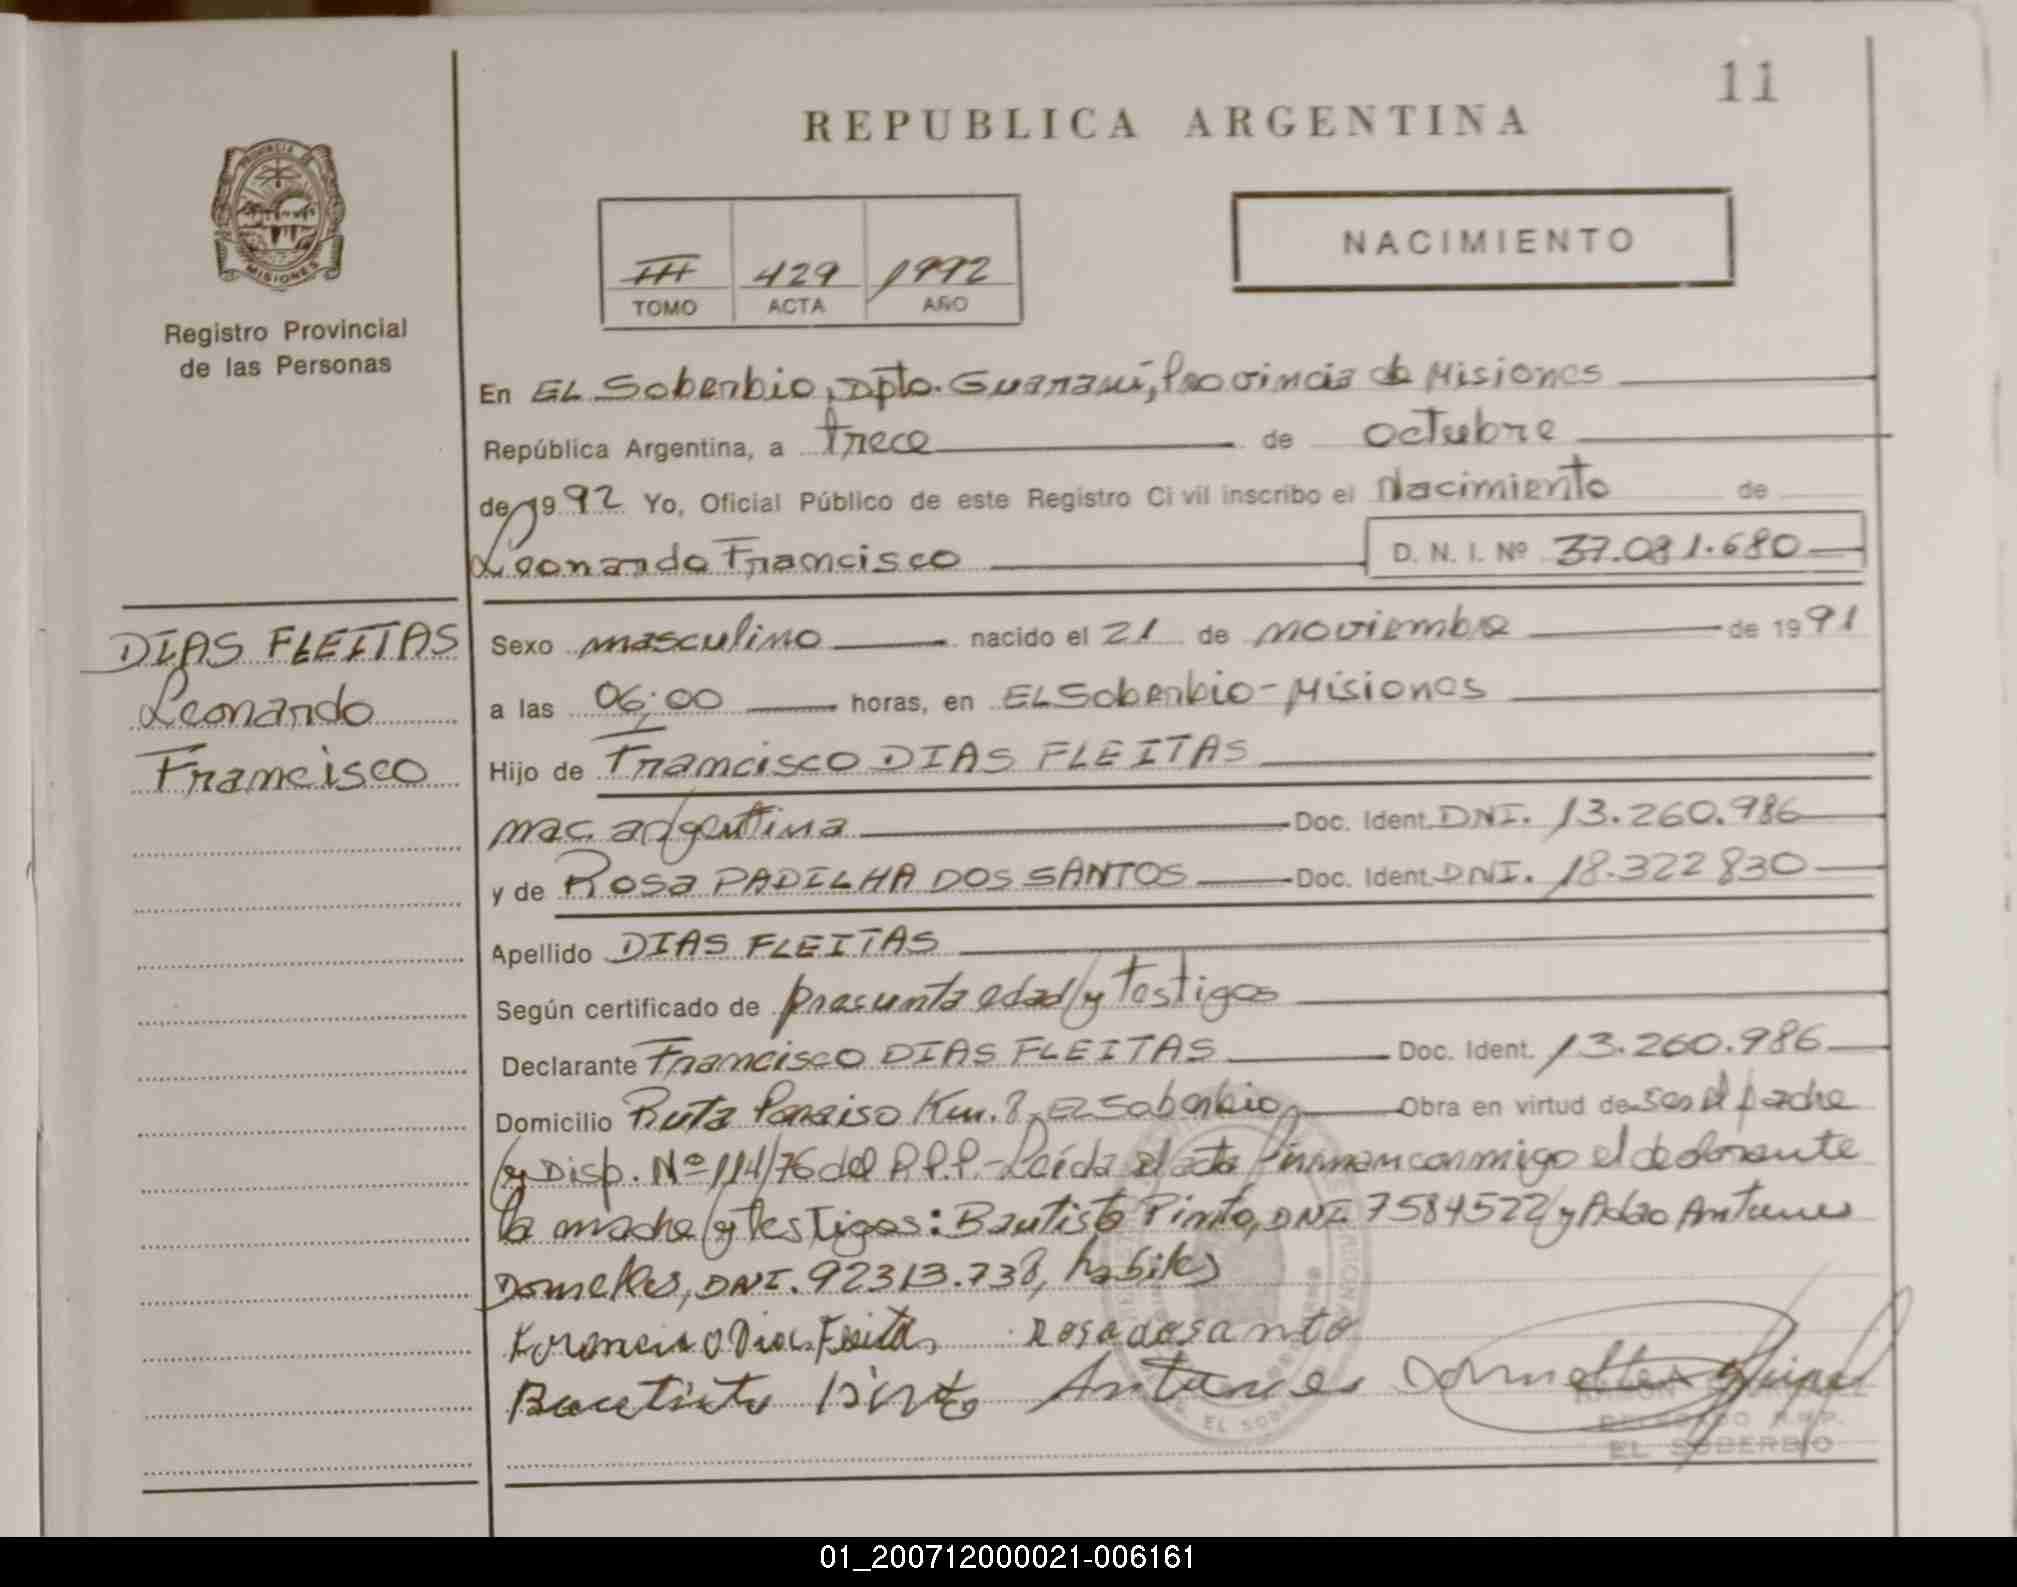 11
REPUBLICA ARGENTINA
PROVINCIA DE
MISIONES
Registro Provincial
de las Personas
III 429 1992
TOMO ACTA AÑO
NACIMIENTO
En EL Soberbio, Dpto. Guaraní, Provincia de Misiones
República Argentina, a trece de octubre
de 1992 Yo, Oficial Público de este Registro Civil inscribo el Nacimiento de
Leonardo Francisco D. N. I. Nº 37.081.680
DIAS FLEITAS
Leonardo
Francisco
Sexo masculino nacido el 21 de noviembre de 1991
a las 06:00 horas, en EL Soberbio - Misiones
Hijo de Francisco DIAS FLEITAS
nac. argentina Doc. Ident. DNI. 13.260.986
y de Rosa PADILHA DOS SANTOS Doc. Ident. DNI. 18.322 830
Apellido DIAS FLEITAS
Según certificado de presunta edad y testigos
Declarante Francisco DIAS FLEITAS Doc. Ident. 13.260.986
Domicilio Ruta Paraiso Km. 8, El Soberbio Obra en virtud de ser el padre
y Disp. Nº 114/76 del R.P.P.- Leída el acta firman conmigo el declarante
la madre y testigos: Bautista Pinto, DNI 7584522 y Adao Antunes
Dornelles, DNI. 92313.738, habiles
Dias Fleita Rosa do santo
Pinto Antunes Dornelles
DELEGADO R.P.P.
EL SOBERBIO
01_200712000021-006161